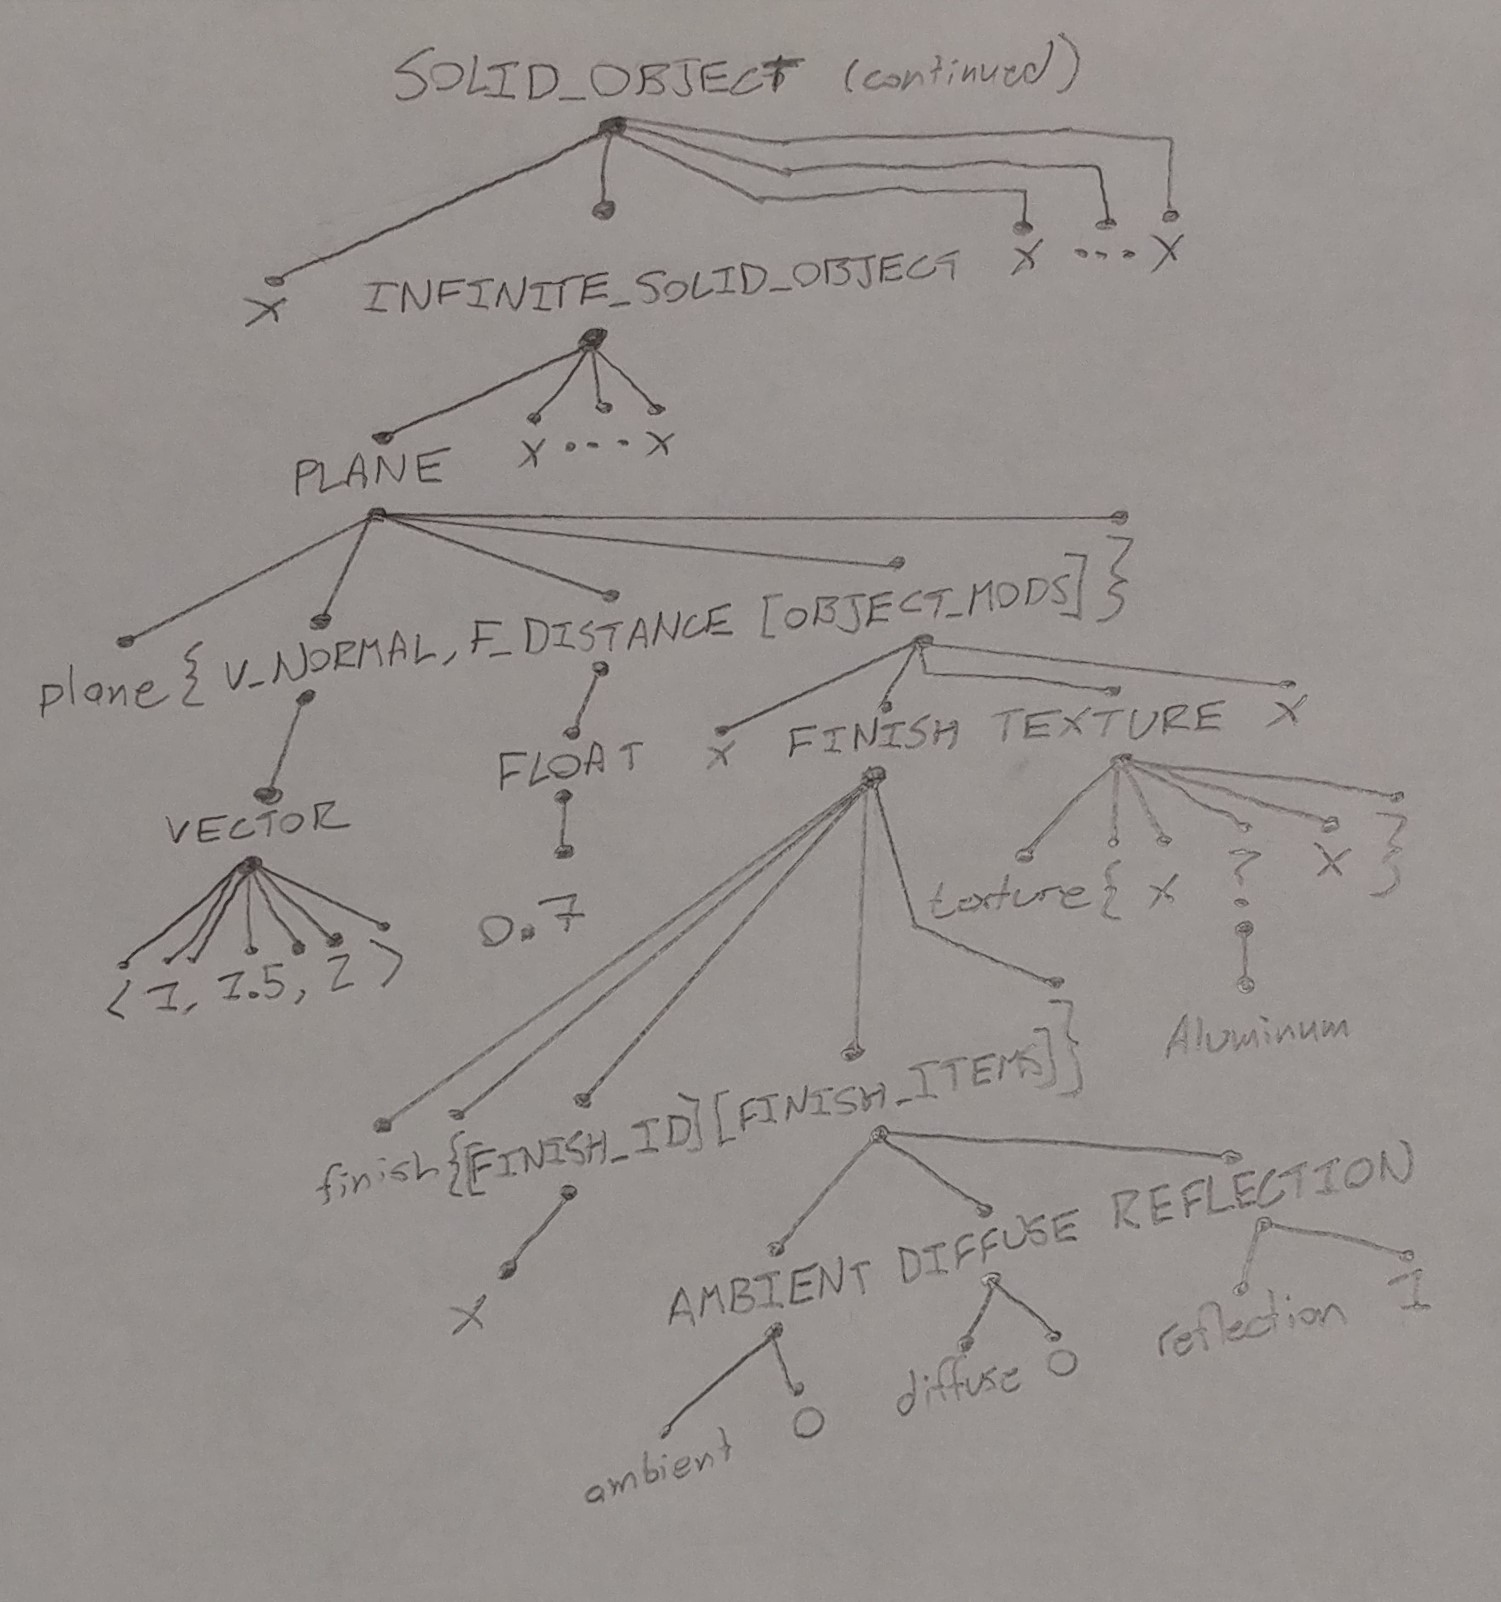 SOLID_OBJECT (continued)
X INFINITE_SOLID_OBJECT X ... X
PLANE X ... X
plane { V_NORMAL, F_DISTANCE [OBJECT_MODS] }
X FINISH TEXTURE X
VECTOR FLOAT
texture { X ? X }
< 1, 1.5, 2 > 0.7
Aluminum
finish {[FINISH_ID] [FINISH_ITEMS] }
X AMBIENT DIFFUSE REFLECTION
ambient 0 diffuse 0 reflection 1